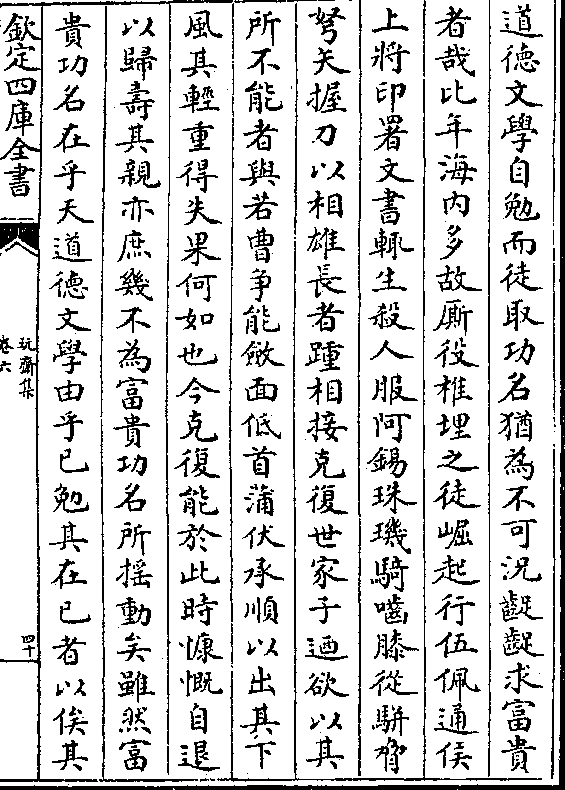 道德文學自勉而徒取功名猶為不可況齪齪求富貴
者哉比年海内多故厮役椎埋之徒崛起行伍佩通侯
上將印署文書輒生殺人服阿錫珠璣騎嚙膝從駢脅
弩矢握刀以相雄長者踵相接克復世家子迺欲以其
所不能者與若曹争能斂面低首蒲伏承順以出其下
風其輕重得失果何如也今克復能於此時慷慨自退
以歸壽其親亦庶幾不為富貴功名所揺動矣雖然富
貴功名在乎天道德文學由乎已勉其在已者以俟其
欽定四庫全書
玩齋集
卷六
四十